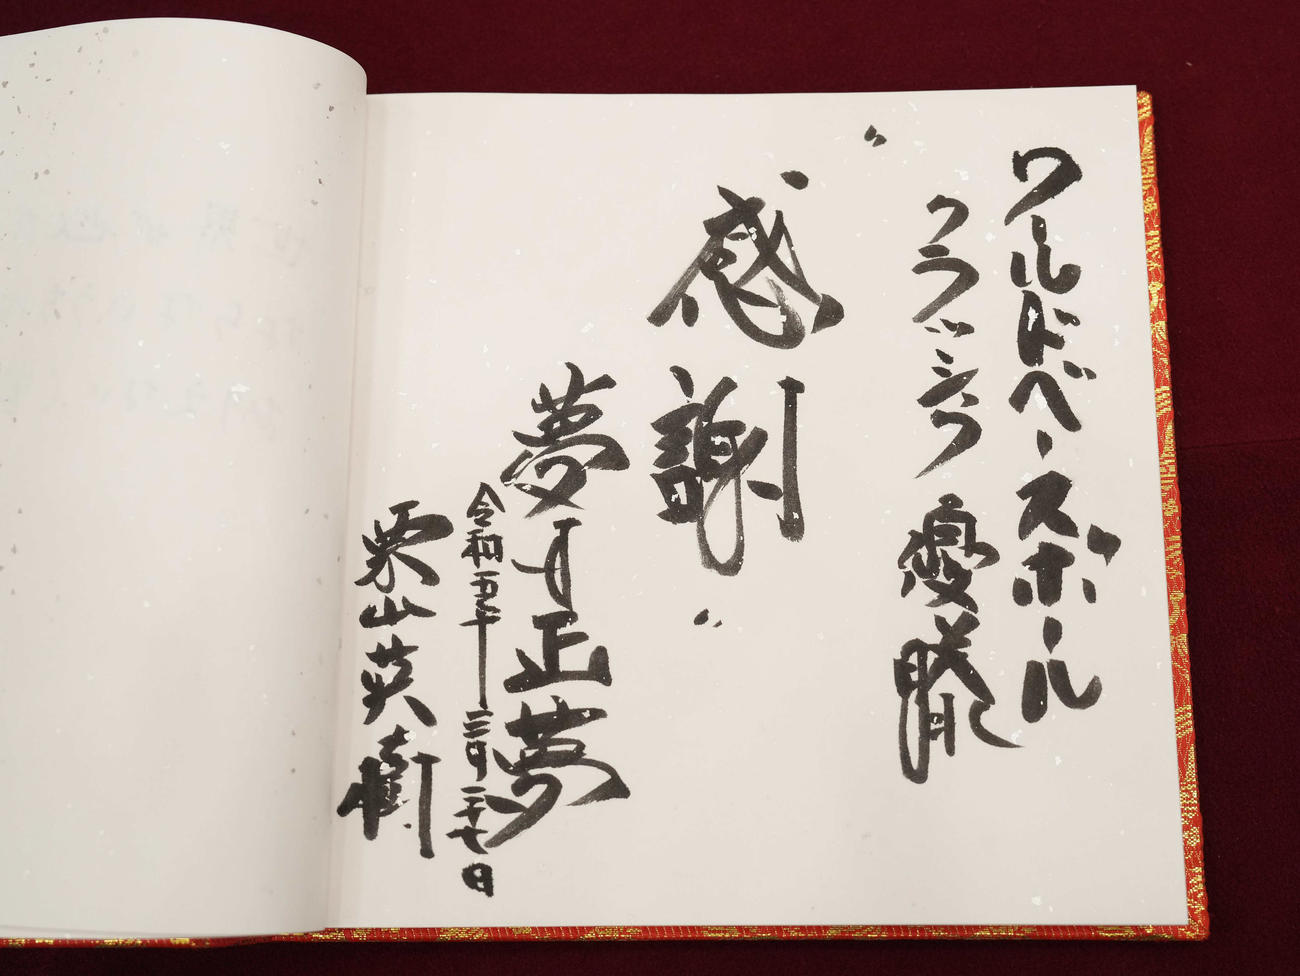 ワールドベースボール
クラッシック優勝
"感謝"
夢は正夢
令和五年三月二十七日
栗山英樹